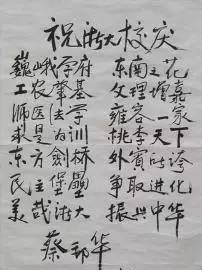 祝浙大校庆
巍峨学府 东南之花
工农肇基 文理增嘉
师医法学 雍容一家
求是为训 桃李天下
东方劍桥 外賓所誇
民主堡壘 争取进化
美哉浙大 振兴中华
蔡邦华